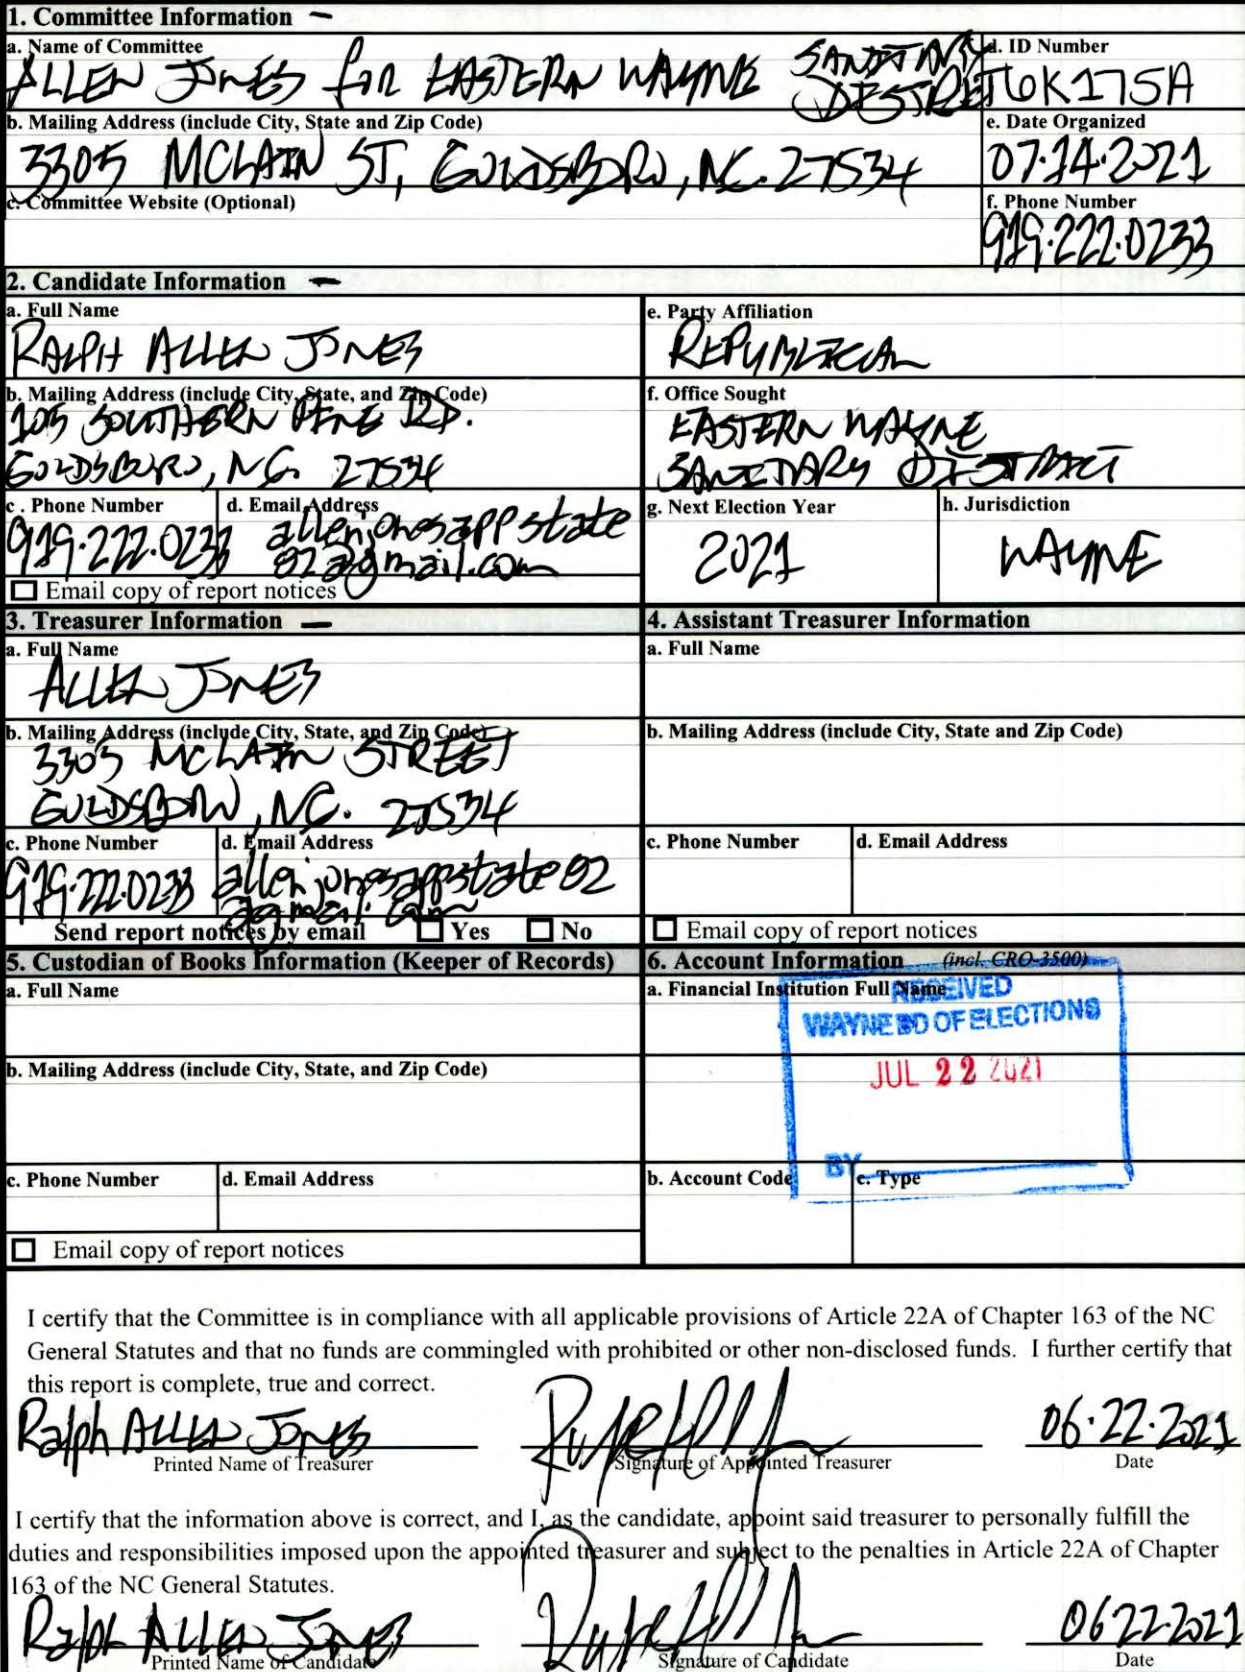 1. Committee Information –
a. Name of Committee
ALLEN JONES for EASTERN WAYNE SANITARY DISTRICT
d. ID Number
b. Mailing Address (include City, State and Zip Code)
3305 MCLAIN ST, GOLDSBORO, NC. 27534
e. Date Organized
07.14.2021
c. Committee Website (Optional)
f. Phone Number
919.222.0233
2. Candidate Information –
a. Full Name
RALPH ALLEN JONES
e. Party Affiliation
REPUBLICAN
b. Mailing Address (include City, State, and Zip Code)
105 SOUTHERN PINE RD.
GOLDSBORO, NC. 27534
f. Office Sought
EASTERN WAYNE
SANITARY DISTRICT
c . Phone Number
919.222.0233
d. Email Address
allenjonesappstate
92@gmail.com
Email copy of report notices
g. Next Election Year
2021
h. Jurisdiction
WAYNE
3. Treasurer Information –
a. Full Name
ALLEN JONES
b. Mailing Address (include City, State, and Zip Code)
3305 MCLAIN STREET
GOLDSBORO, NC. 27534
c. Phone Number
919.222.0233
d. Email Address
allenjonesappstate92
@gmail.com
Send report notices by email Yes No
4. Assistant Treasurer Information
a. Full Name
b. Mailing Address (include City, State and Zip Code)
c. Phone Number
d. Email Address
Email copy of report notices
5. Custodian of Books Information (Keeper of Records)
a. Full Name
b. Mailing Address (include City, State, and Zip Code)
c. Phone Number
d. Email Address
Email copy of report notices
6. Account Information (incl. CRO-3500)
a. Financial Institution Full Name
RECEIVED
WAYNE BD OF ELECTIONS
JUL 22 2021
BY
b. Account Code
c. Type
I certify that the Committee is in compliance with all applicable provisions of Article 22A of Chapter 163 of the NC
General Statutes and that no funds are commingled with prohibited or other non-disclosed funds. I further certify that
this report is complete, true and correct.
Ralph ALLEN JONES 06.22.2021
Printed Name of Treasurer Signature of Appointed Treasurer Date
I certify that the information above is correct, and I, as the candidate, appoint said treasurer to personally fulfill the
duties and responsibilities imposed upon the appointed treasurer and subject to the penalties in Article 22A of Chapter
163 of the NC General Statutes.
Ralph ALLEN JONES 06 22.2021
Printed Name of Candidate Signature of Candidate Date